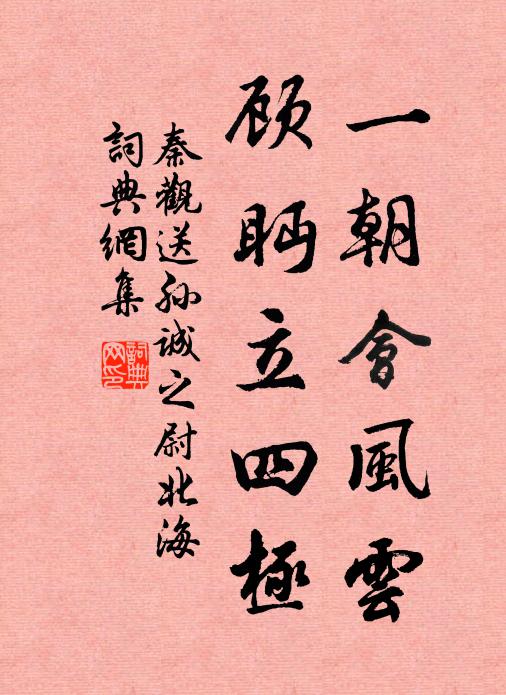 一朝會風雲
顾眄立四極
秦觀送孙诚之尉北海
詞典網集
詞典網印